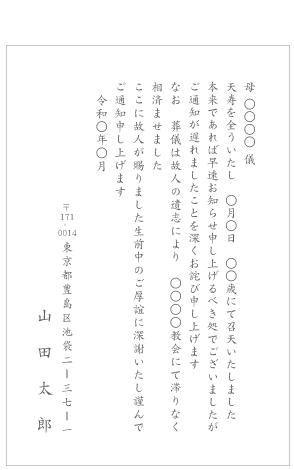 母 〇〇〇〇 儀
天寿を全ういたし 〇月〇日 〇〇歳にて召天いたしました
本来であれば早速お知らせ申し上げるべき処でございましたが
ご通知が遅れましたことを深くお詫び申し上げます
なお 葬儀は故人の遺志により 〇〇〇〇教会にて滞りなく
相済ませました
ここに故人が賜りました生前中のご厚誼に深謝いたし謹んで
ご通知申し上げます
令和〇年〇月
〒171-0014 東京都豊島区池袋二ー三七ー一
山田太郎